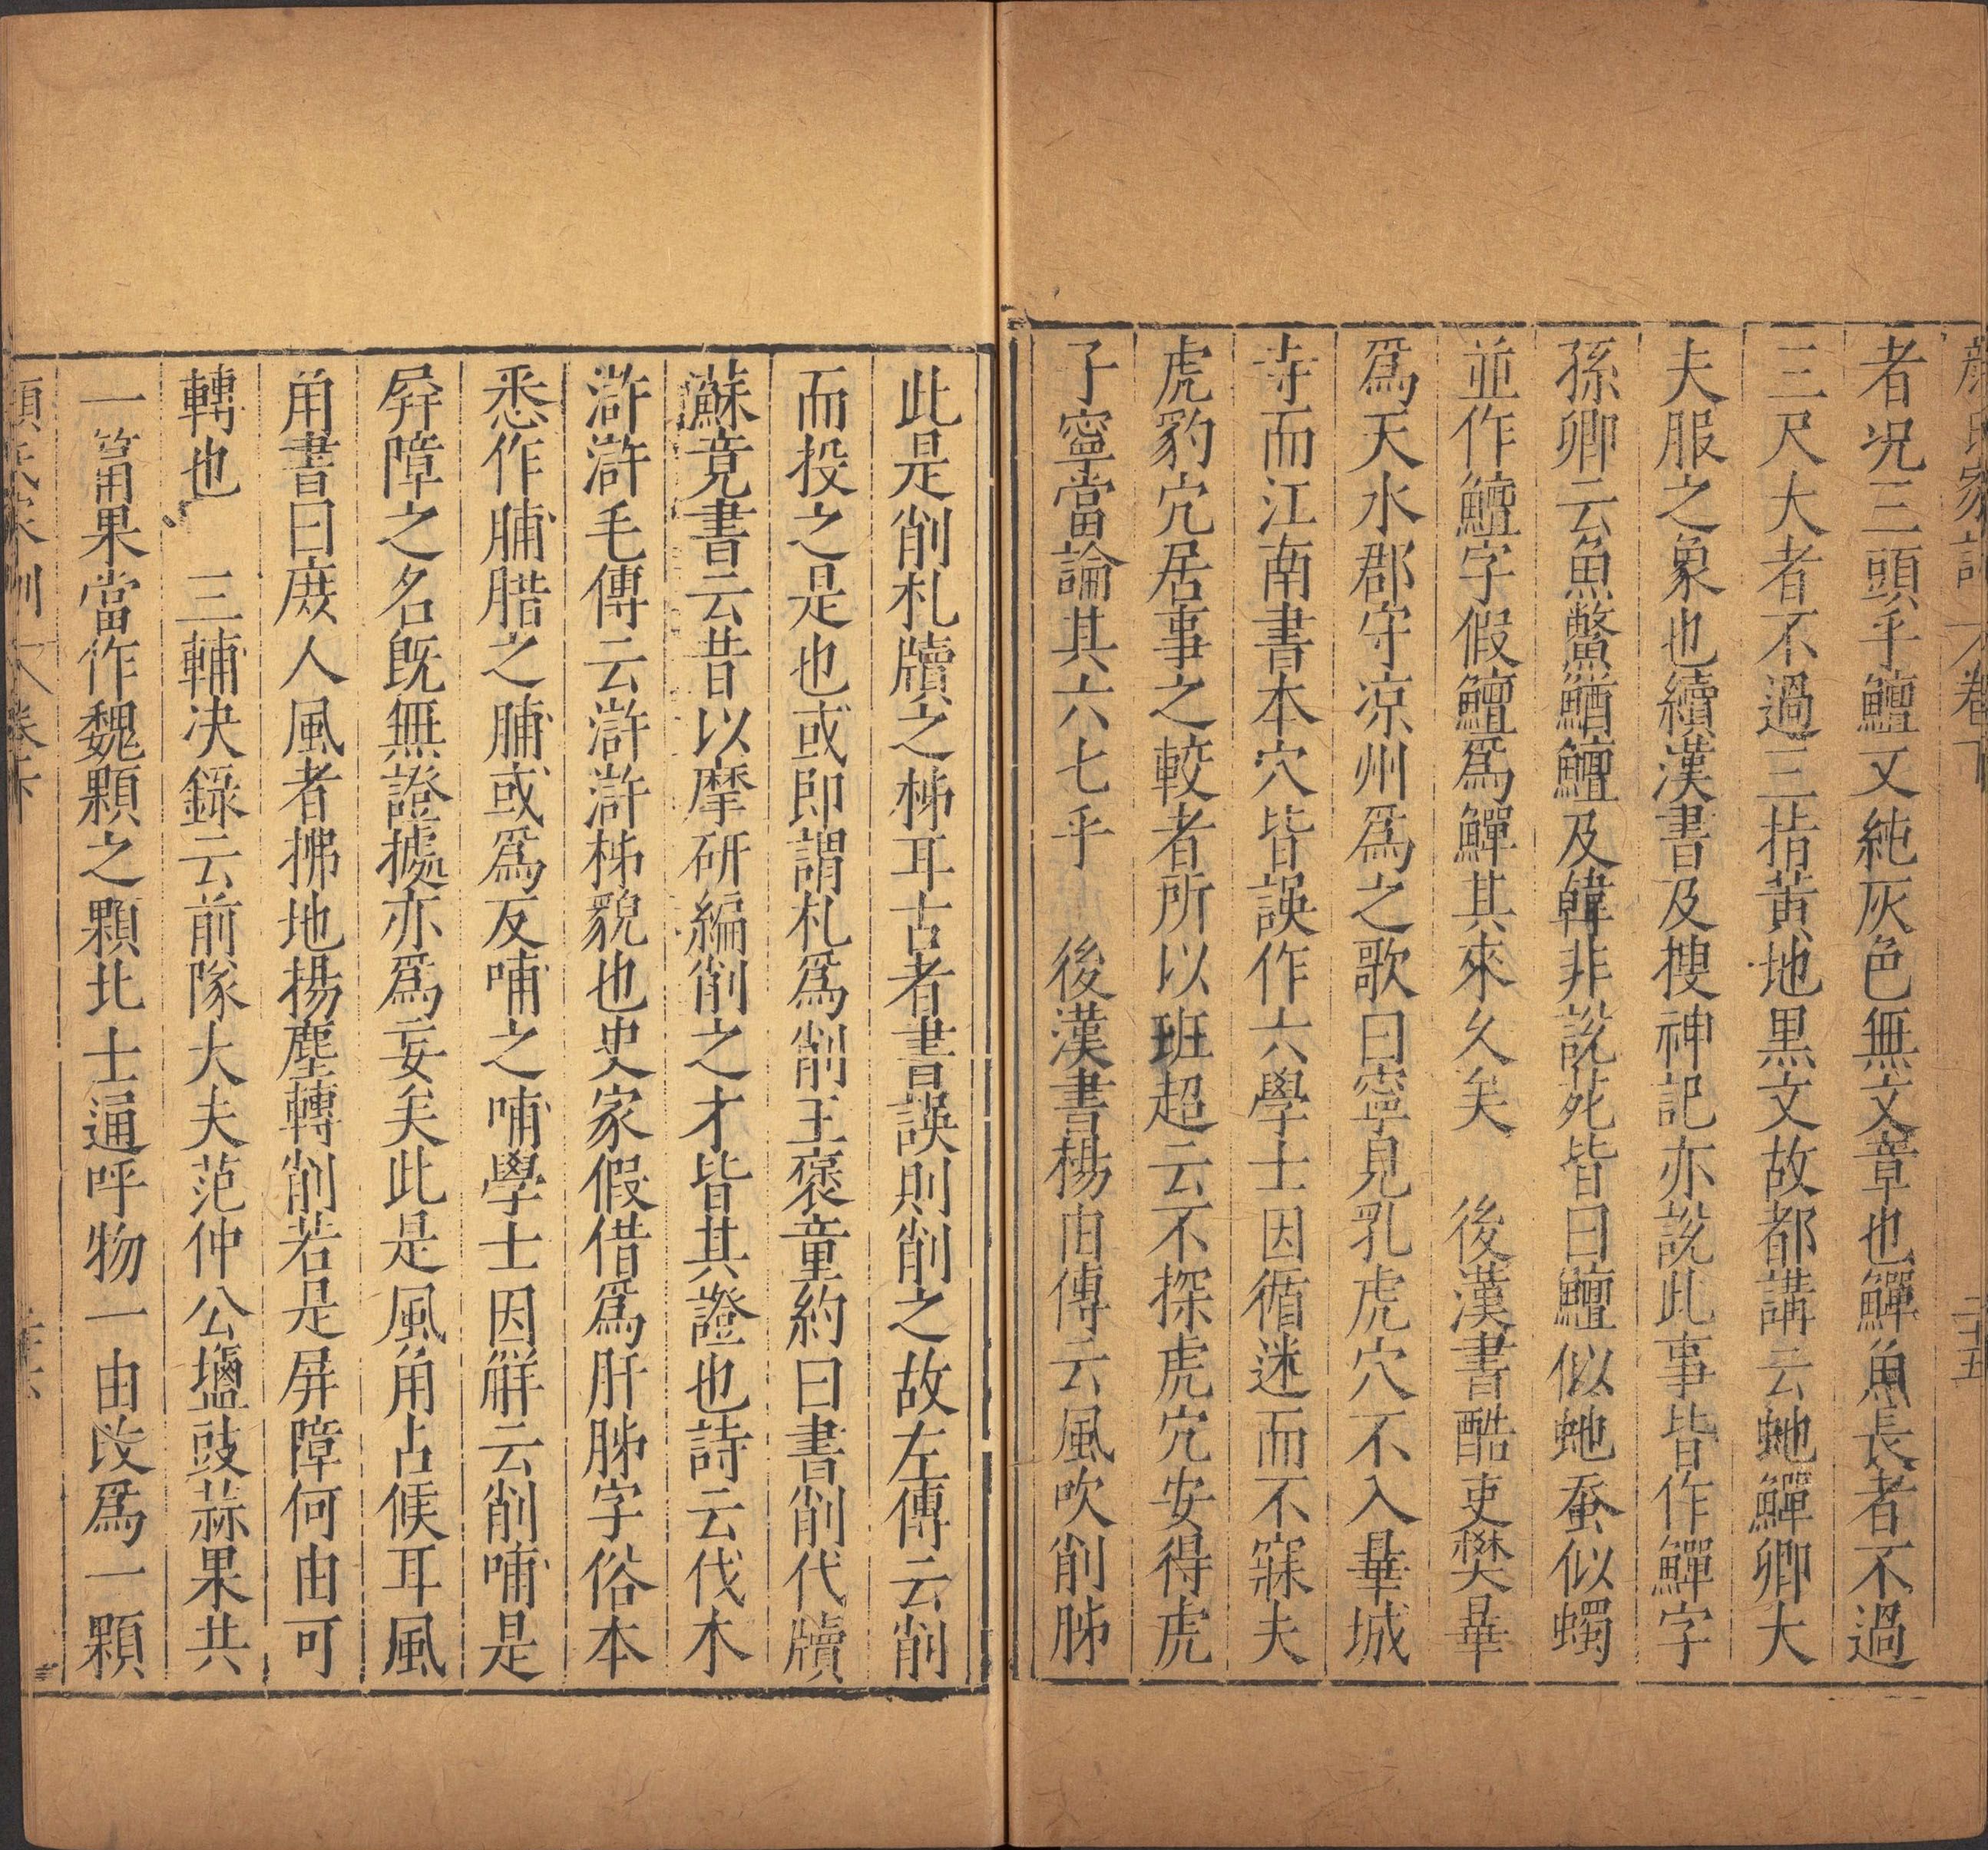 顏氏家訓 卷下 二十五
者况三頭乎鱣又純灰色無文章也鱓魚長者不過
三尺大者不過三指黄地黒文故都講云虵鱓卿大
夫服之象也續漢書及搜神記亦說此事皆作鱓字
孫卿云魚鱉鰌鱣及韓非說苑皆曰鱣似虵蚕似蠋
並作鱣字假鱣爲鱓其來久矣　後漢書酷吏樊曅
爲天水郡守凉州爲之歌曰寧見乳虎穴不入曅城
寺而江南書本穴皆誤作六學士因循迷而不寤夫
虎豹穴居事之較者所以班超云不探虎穴安得虎
子寧當論其六七乎　後漢書楊由傳云風吹削胏
此是削札牘之柹耳古者書誤則削之故左傳云削
而投之是也或即謂札爲削王褒童約曰書削代牘
蘇竟書云昔以摩研編削之才皆其證也詩云伐木
滸滸毛傳云滸滸柹貌也史家假借爲肝胏字俗本
悉作脯腊之脯或爲反哺之哺學士因解云削哺是
屛障之名旣無證據亦爲妄矣此是風角占候耳風
角書曰庻人風者拂地揚塵轉削若是屏障何由可
轉也　三輔决録云前隊大夫范仲公鹽豉蒜果共
一筩果當作魏顆之顆北士通呼物一由改爲一顆
顏氏家訓 卷下 二十六